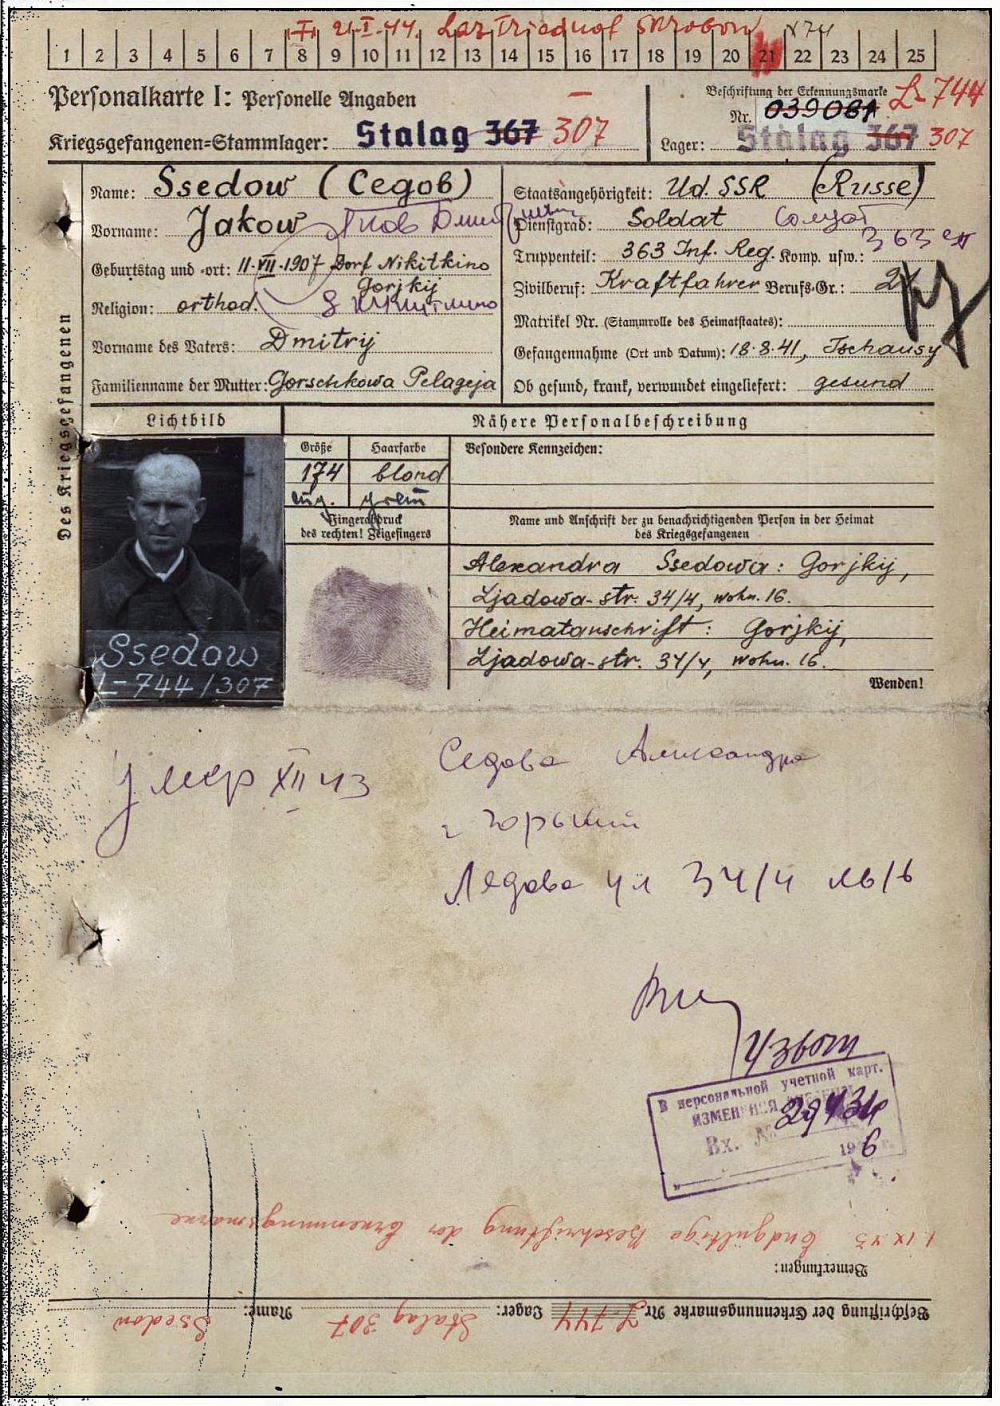 I. 21.I.44. Laz Friednof Skrobow N 74
1 2 3 4 5 6 7 8 9 10 11 12 13 14 15 16 17 18 19 20 21 22 23 24 25
Personalkarte I: Personelle Angaben
Kriegsgefangenen-Stammlager: Stalag 367 307
Beschriftung der Erkennungsmarke
Nr. 039081 L-744
Lager: Stalag 367 307
Des Kriegsgefangenen
Name: Ssedow (Седов)
Vorname: Jakow Яков
Geburtstag und -ort: 11.VII.1907 Dorf Nikitkino
Gorjkij
Religion: orthod.
Vorname des Vaters: Dmitrij
Familienname der Mutter: Gorschkowa Pelageja
Staatsangehörigkeit: Ud.SSR (Russe)
Dienstgrad: Soldat Солдат
Truppenteil: 363 Inf. Reg. Komp. usw.: 363
Zivilberuf: Kraftfahrer Berufs-Gr.:
Matrikel Nr. (Stammrolle des Heimatstaates):
Gefangennahme (Ort und Datum): 18.8.41, Tschausy
Ob gesund, krank, verwundet eingeliefert: gesund
Lichtbild
Nähere Personalbeschreibung
Größe Haarfarbe Besondere Kennzeichen:
174 blond
Fingerabdruck
des rechten! Zeigefingers
Name und Anschrift der zu benachrichtigenden Person in der Heimat
des Kriegsgefangenen
Alexandra Ssedowa: Gorjkij,
Ljadowa-str. 34/4, wohn. 16.
Heimatanschrift: Gorjkij,
Ljadowa-str. 34/4, wohn. 16.
Wenden!
Ssedow
L-744/307
Умер XII 43
Седова Александра
г Горький
Лядова ул 34/4
В персональной учетной карт.
ИЗМЕНЕНИЯ
Вх. №
1. IX 43 Endgültige Beschriftung der Erkennungsmarke
Bemerkungen:
Beschriftung der Erkennungsmarke Nr. L-744 Lager: Stalag 307 Name: Ssedow